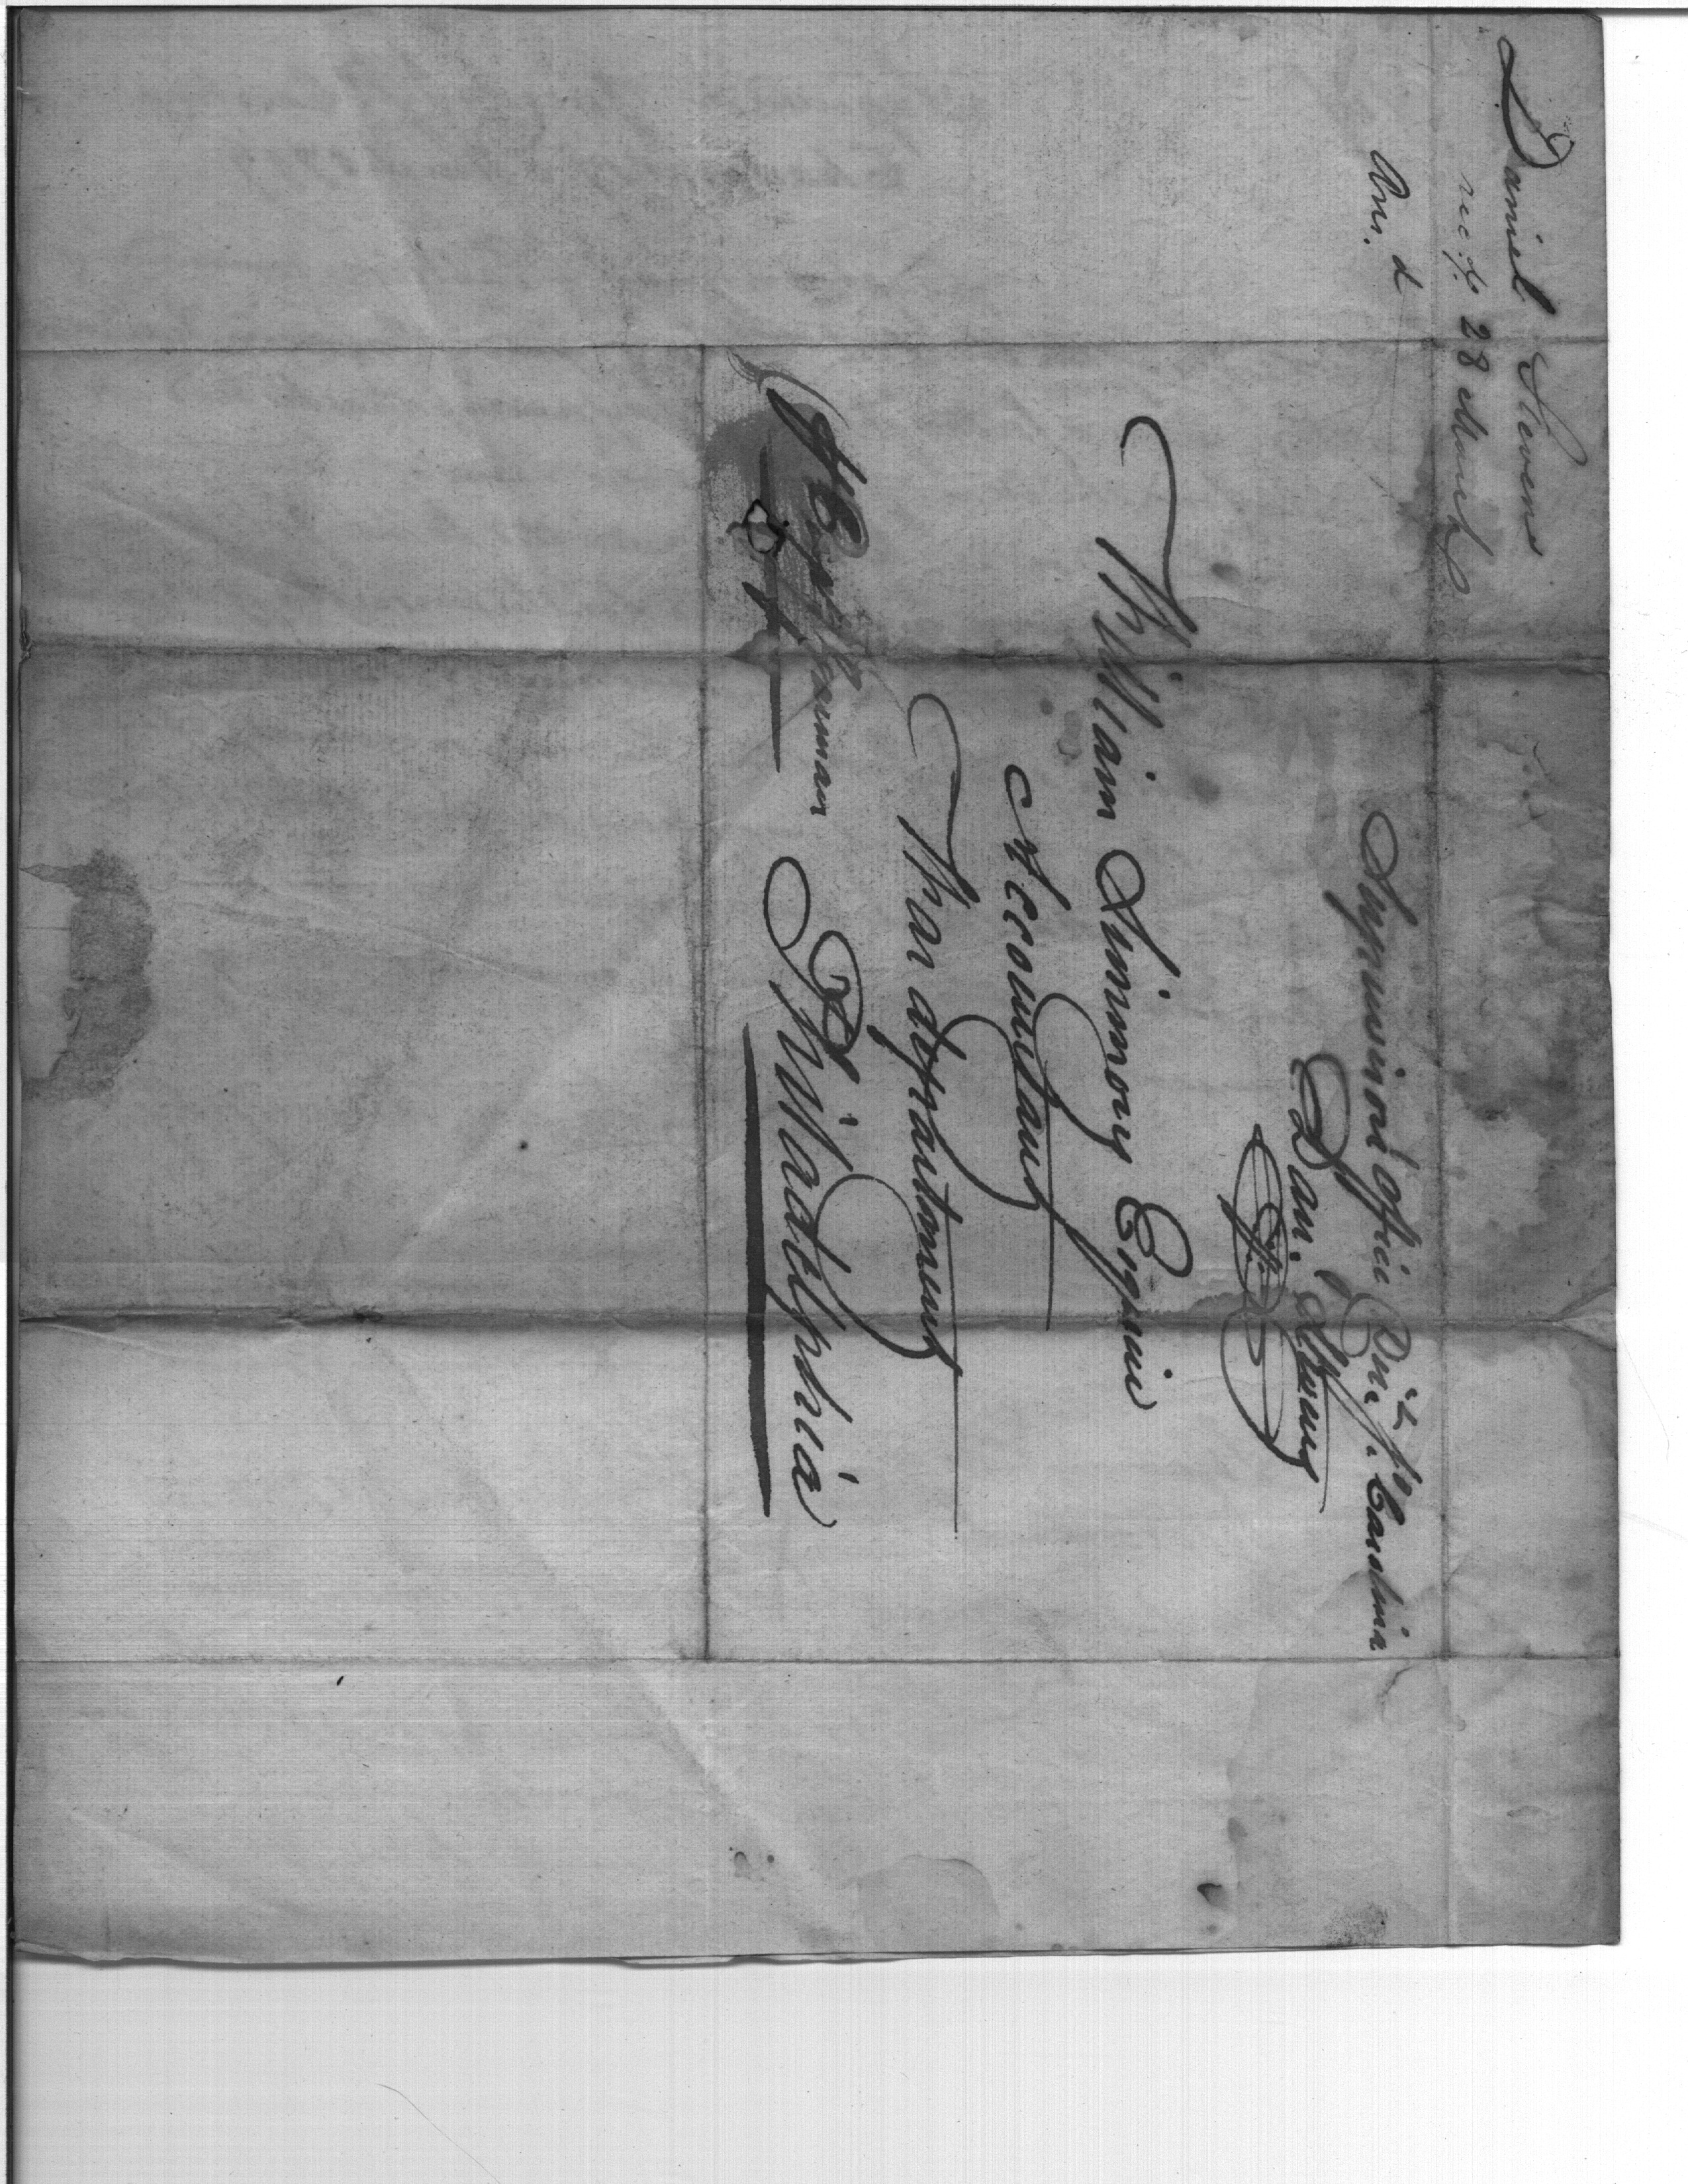 Daniel Stevens
recd. 28 March
Ans. d
Supervisors Office Dist. So. Carolina
Dan. Stevens
William Simmons Esquire
Accountant
War department
Philadelphia
Capt.